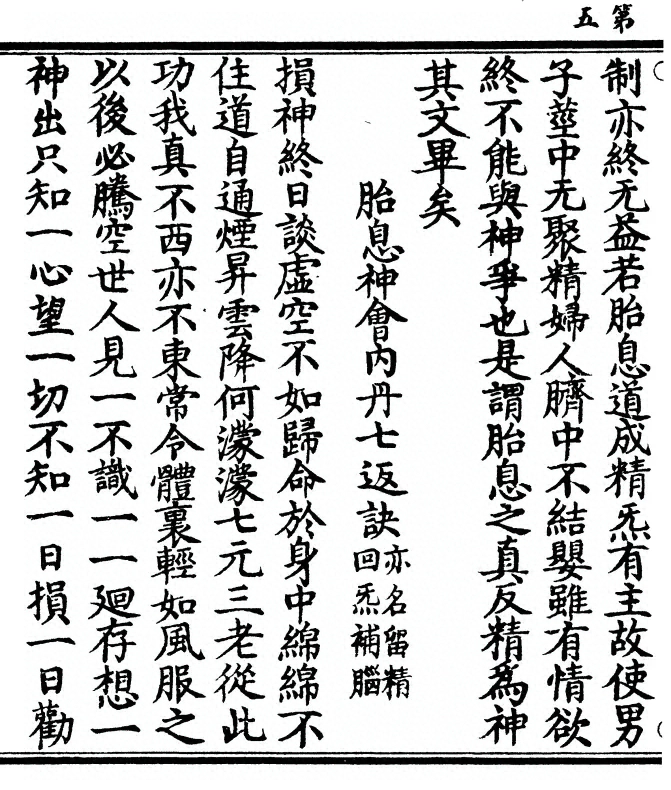 第五
制亦終无益若胎息道成精炁有主故使男
子莖中无聚精婦人臍中不結嬰雖有情欲
終不能與神爭也是謂胎息之真反精為神
其文畢矣
胎息神會內丹七返訣亦名留精
回炁補腦
損神終日談虛空不如歸命於身中綿綿不
住道自通煙昇雲降何濛濛七元三老從此
功我真不西亦不東常令體裏輕如風服之
以後必騰空世人見一不識一一廻存想一
神出只知一心望一切不知一日損一日勸